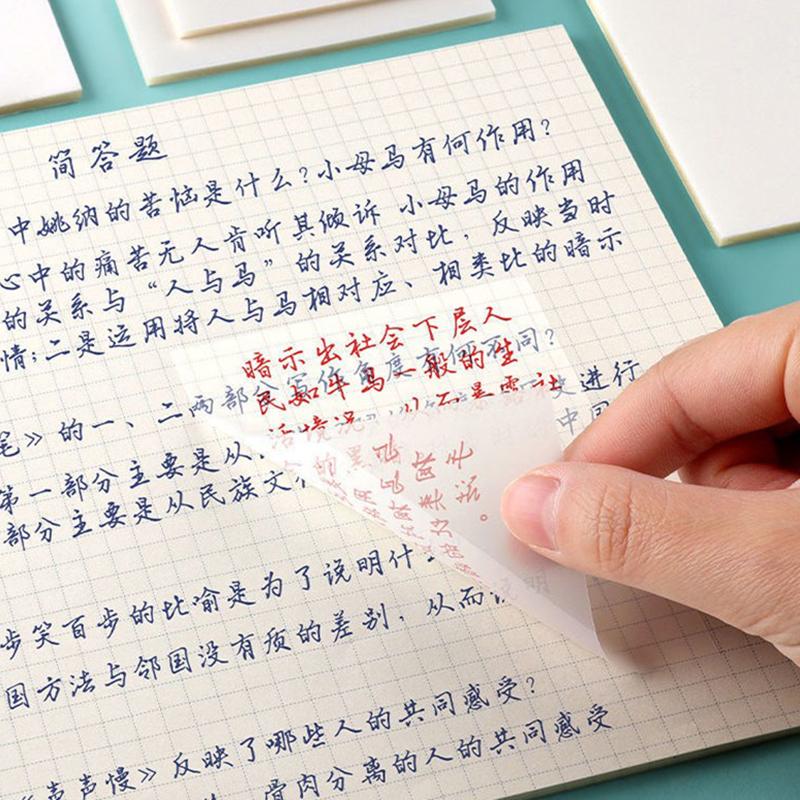 简答题
中姚纳的苦恼是什么?小母马有何作用?
心中的痛苦无人肯听其倾诉 小母马的作用
的关系与“人与马”的关系对比，反映当时
情;二是运用将人与马相对应、相类比的暗示
暗示出社会下层人
民如牛马一般的生
活境况
笔》的一、二两部分写作角度有何不同?
第一部分主要是从 进行
部分主要是从民族文 中国
步笑百步的比喻是为了说明什
国方法与邻国没有质的差别，从而说明
《声声慢》反映了哪些人的共同感受?
骨肉分离的人的共同感受